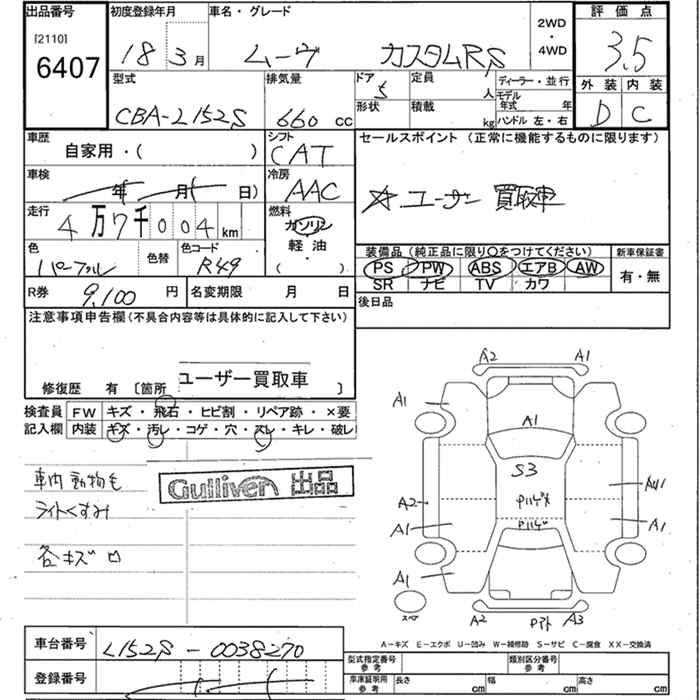 出品番号
[2110]
6407
初度登録年月
18 3月
車名・グレード
ムーヴ カスタムRS
2WD
・
4WD
評価点
3.5
外装 内装
D C
型式
CBA-L152S
排気量
660 cc
ドア
5
定員
人
形状
積載
kg
ディーラー・並行
モデル
年式 年
ハンドル 左・右
車歴
自家用・( )
シフト
CAT
車検
年 月( 日)
冷房
AAC
走行
4万7千004km
燃料
ガソリン
軽油
( )
色
パープル
色替
色コード
R49
R券
9,100円
名変期限 月 日
セールスポイント (正常に機能するものに限ります)
☆ユーザー買取車
装備品 (純正品に限り○をつけてください)
PS PW ABS エアB AW
SR ナビ TV カワ
新車保証書
有・無
後日品
注意事項申告欄(不具合内容等は具体的に記入して下さい)
ユーザー買取車
修復歴 有 [箇所 ]
検査員
記入欄
FW キズ・飛石・ヒビ割・リペア跡・×要
内装 キズ・汚レ・コゲ・穴・スレ・キレ・破レ
車内動物毛
ライトくすみ
各キズ凹
Gulliver 出品
A2 A1
A1
A1
A1
S3
A2
A1
A1
A1
A1
A2
A3
スペア
A-キズ E-エクボ U-凹み W-補修跡 S-サビ C-腐食 XX-交換済
車台番号
L152S-0038270
登録番号
型式指定番号
参考
類別区分番号
参考
車庫証明用
参考
長さ cm
幅 cm
高さ cm